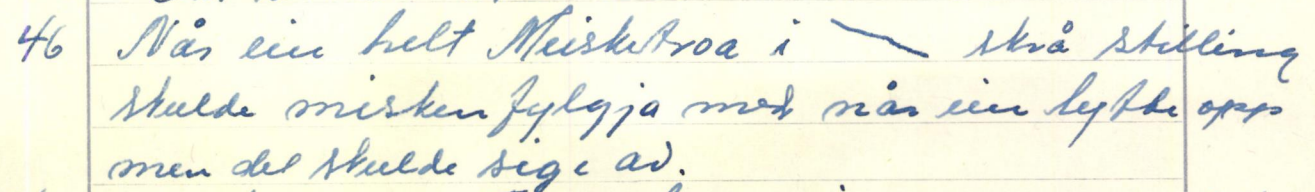 46 Når ein helt Meisketroa i \ skrå stilling
skulde misken fylgja med når ein lytte opp
men det skulde sige av.